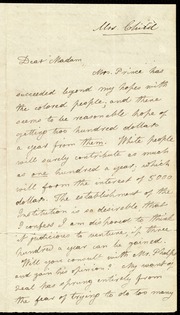 Mrs Child
Dear Madam
Mrs. Prince has
succeeded beyond my hopes with
the colored people, and there
seems to be reasonable hope of
getting two hundred dollars
a year from them. White people
will surely contribute as much
as one hundred a year, which
will form the interest of 5000
dollars. The establishment of the
Institution is so desirable that
I confess I am disposed to think
it judicious to venture, if three
hundred a year can be gained.
Will you consult with Mr. Phelps
and gain his opinion? My want of
zeal has sprung entirely from
the fear of trying to do too many